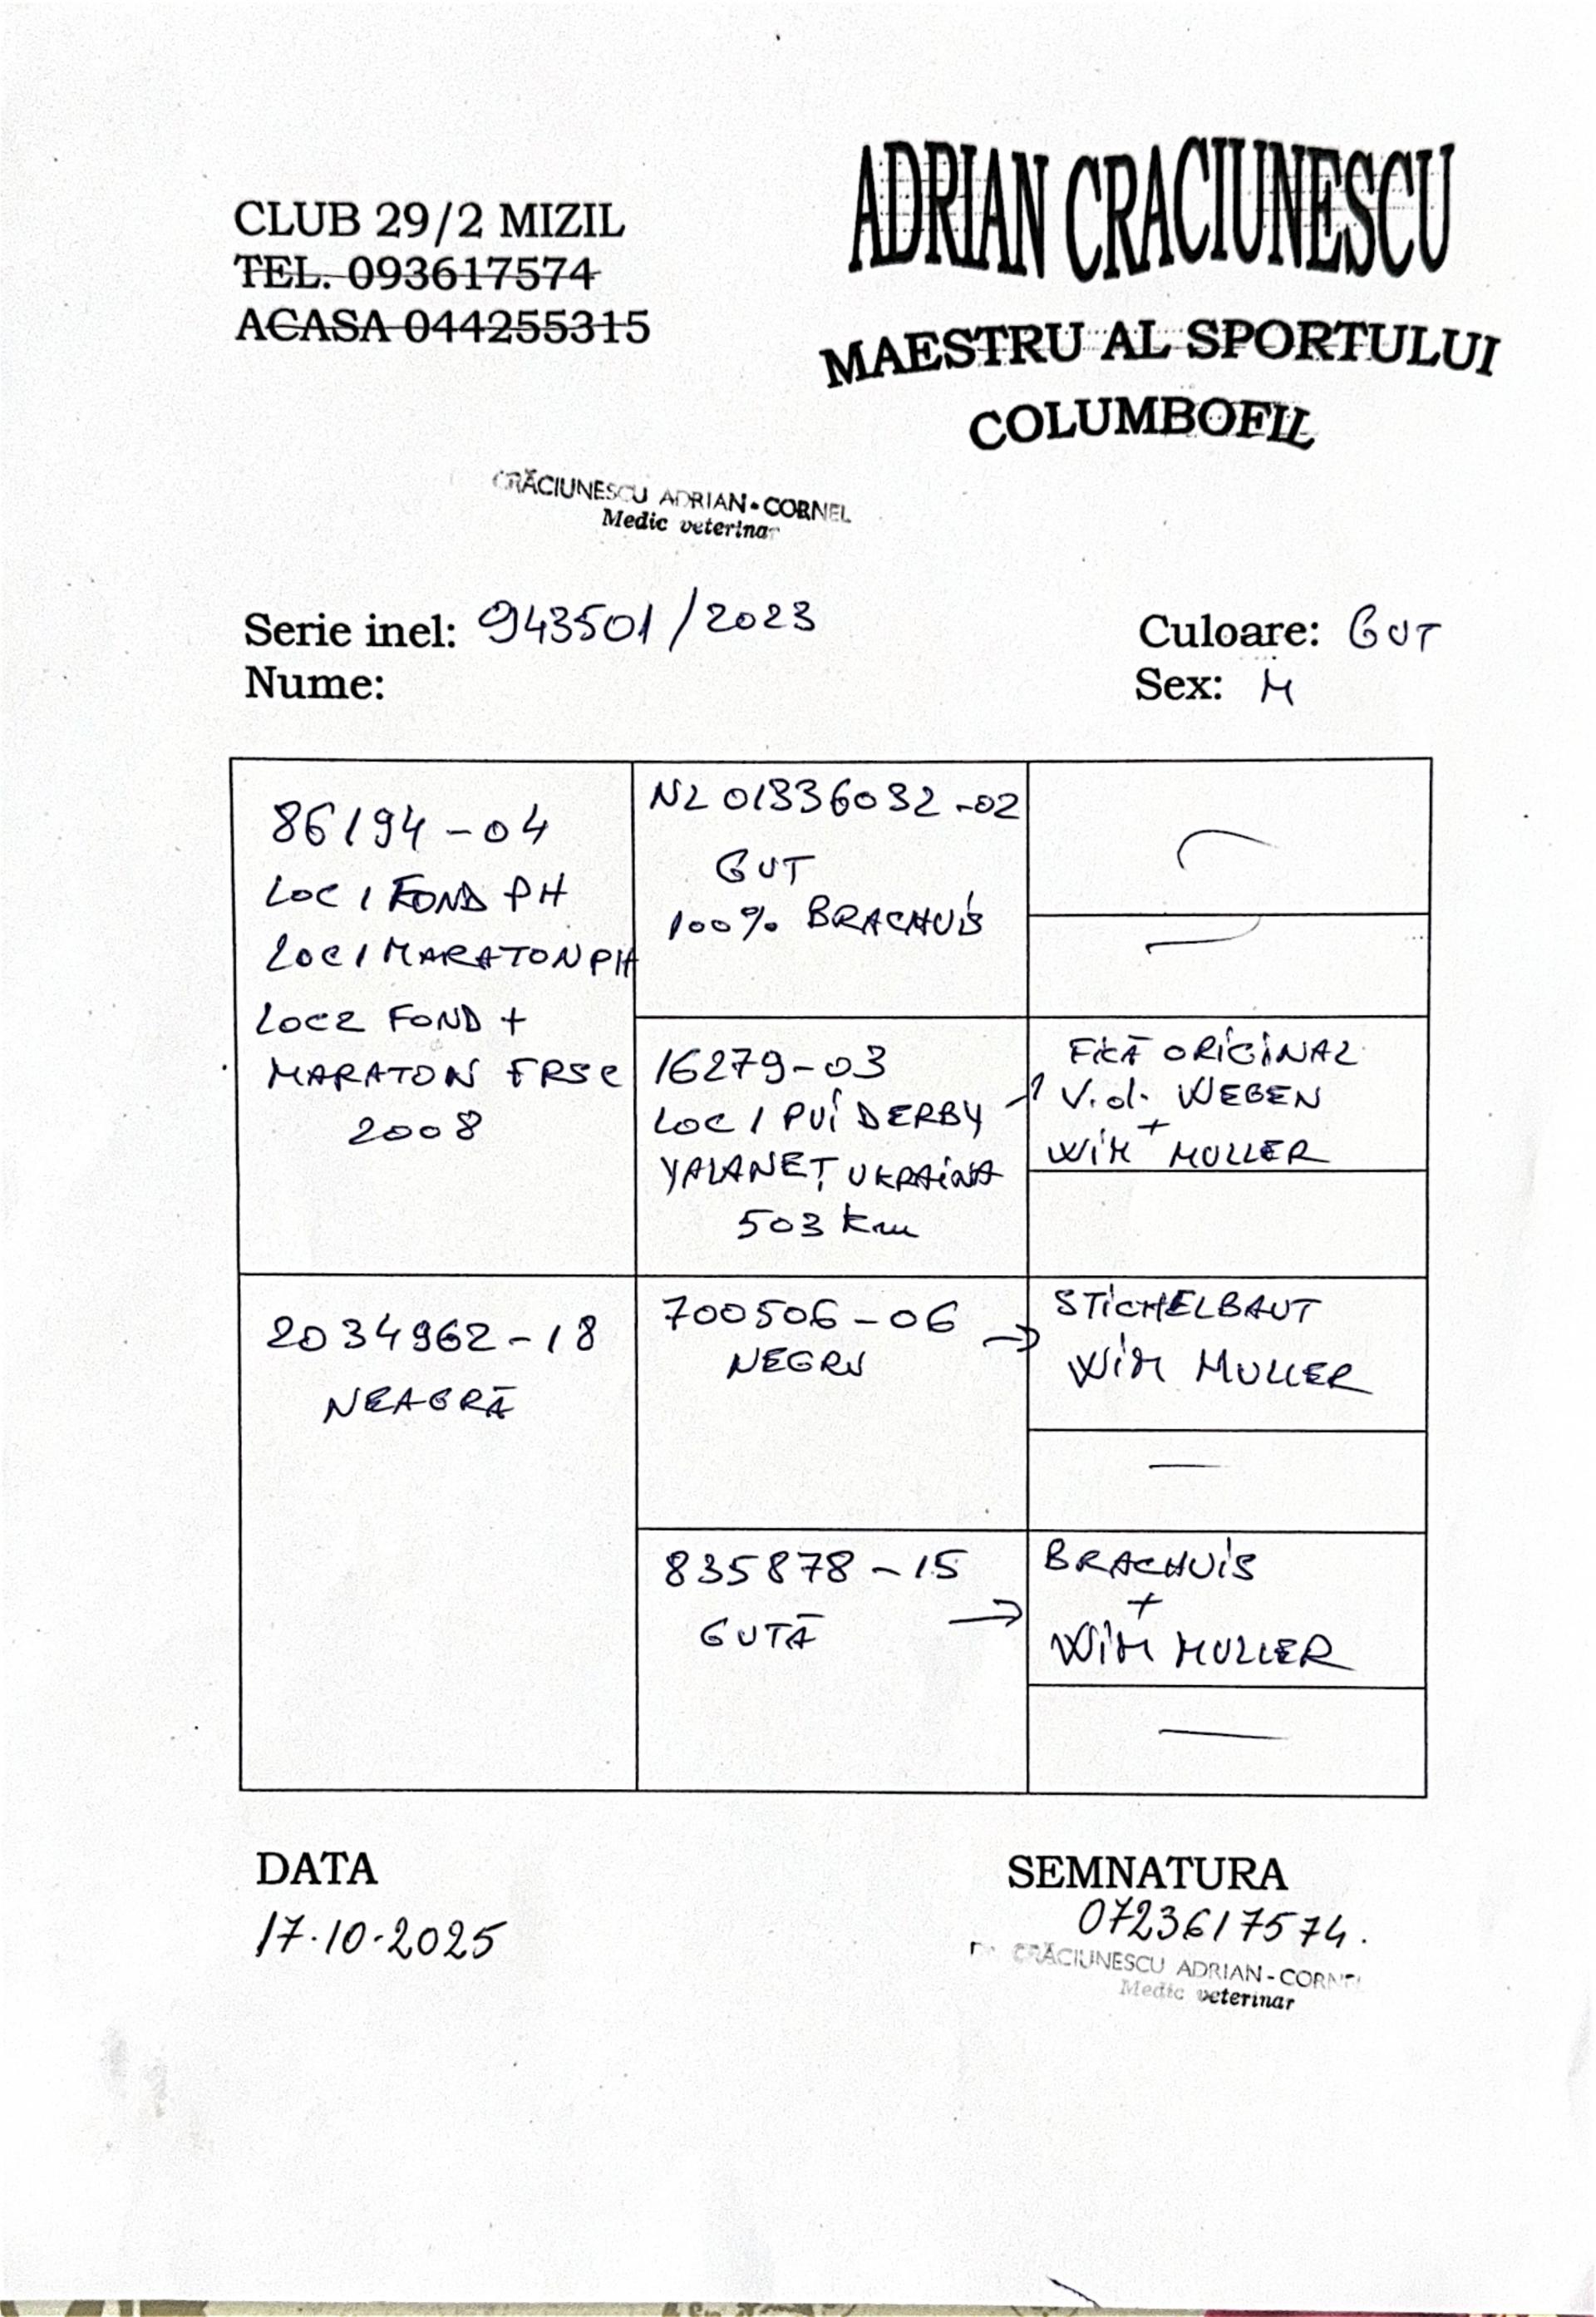 CLUB 29/2 MIZIL
TEL. 093617574
ACASA 044255315
ADRIAN CRACIUNESCU
MAESTRU AL SPORTULUI
COLUMBOFIL
CRĂCIUNESCU ADRIAN-CORNEL
Medic veterinar
Serie inel: 943501/2023
Culoare: GUT
Nume:
Sex: M
86194-04
LOC 1 FOND PH
LOC 1 MARATON PH
LOC 2 FOND +
MARATON FRSC
2008
NL 01336032-02
GUT
100% BRACHUIS
16279-03
LOC 1 PUI DERBY
YALANEȚ UKRAINA
503 km
FICĂ ORIGINAL
V.d. WEGEN
+
WIM MULLER
2034962-18
NEAGRĂ
700506-06 →
NEGRU
STICHELBAUT
WIM MULLER
—
835878-15
GUTĂ →
BRACHUIS
+
WIM MULLER
—
DATA
17.10.2025
SEMNATURA
0723617574.
CRĂCIUNESCU ADRIAN-CORNEL
Medic veterinar